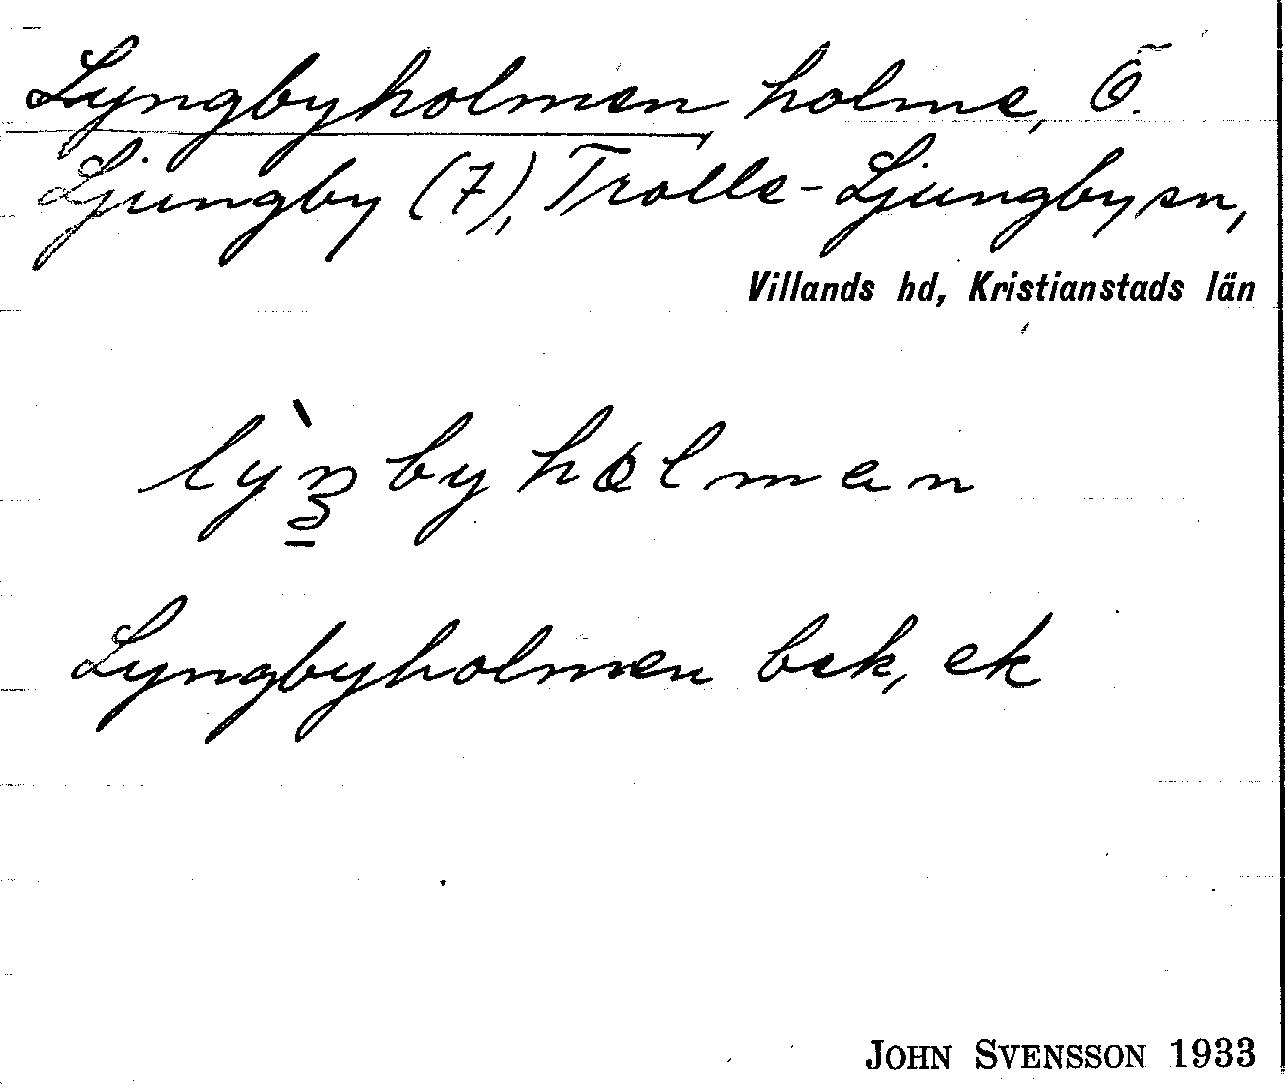 Lyngbyholmen holme, Ö.
Ljungby (7), Trolle-Ljungby sn,
Villands hd, Kristianstads län
lỳŋbyhɷlmen
Lyngbyholmen bek, ek
JOHN SVENSSON 1933